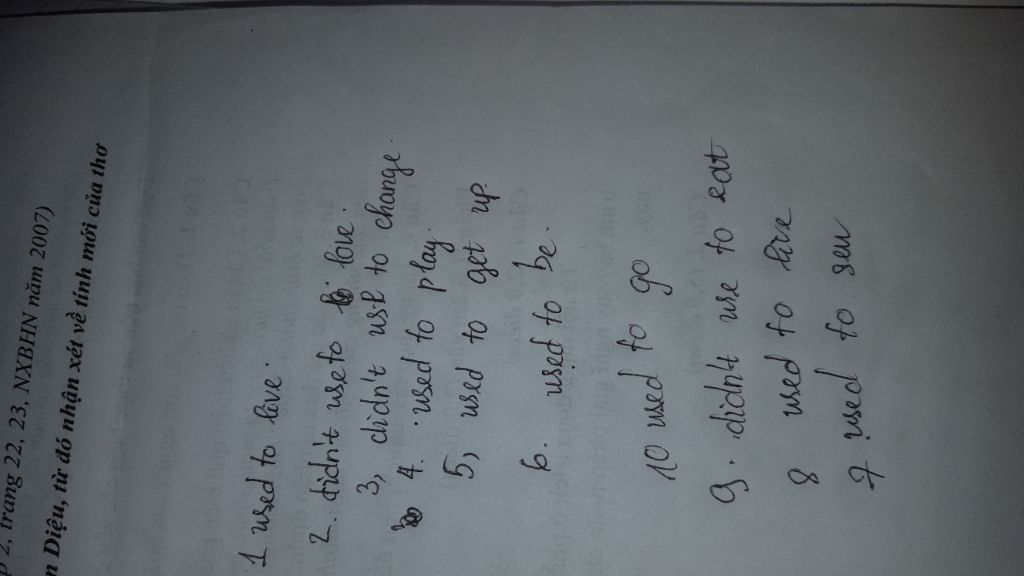 2, trang 22, 23, NXBHN năm 2007)
Diệu, từ đó nhận xét về tính mới của thơ
1 used to love.
2. didn't use to love.
3, didn't use to change.
4. used to play.
5, used to get up.
6. used to be.
10 used to go
9. didn't use to eat
8 used to
7 used to sew